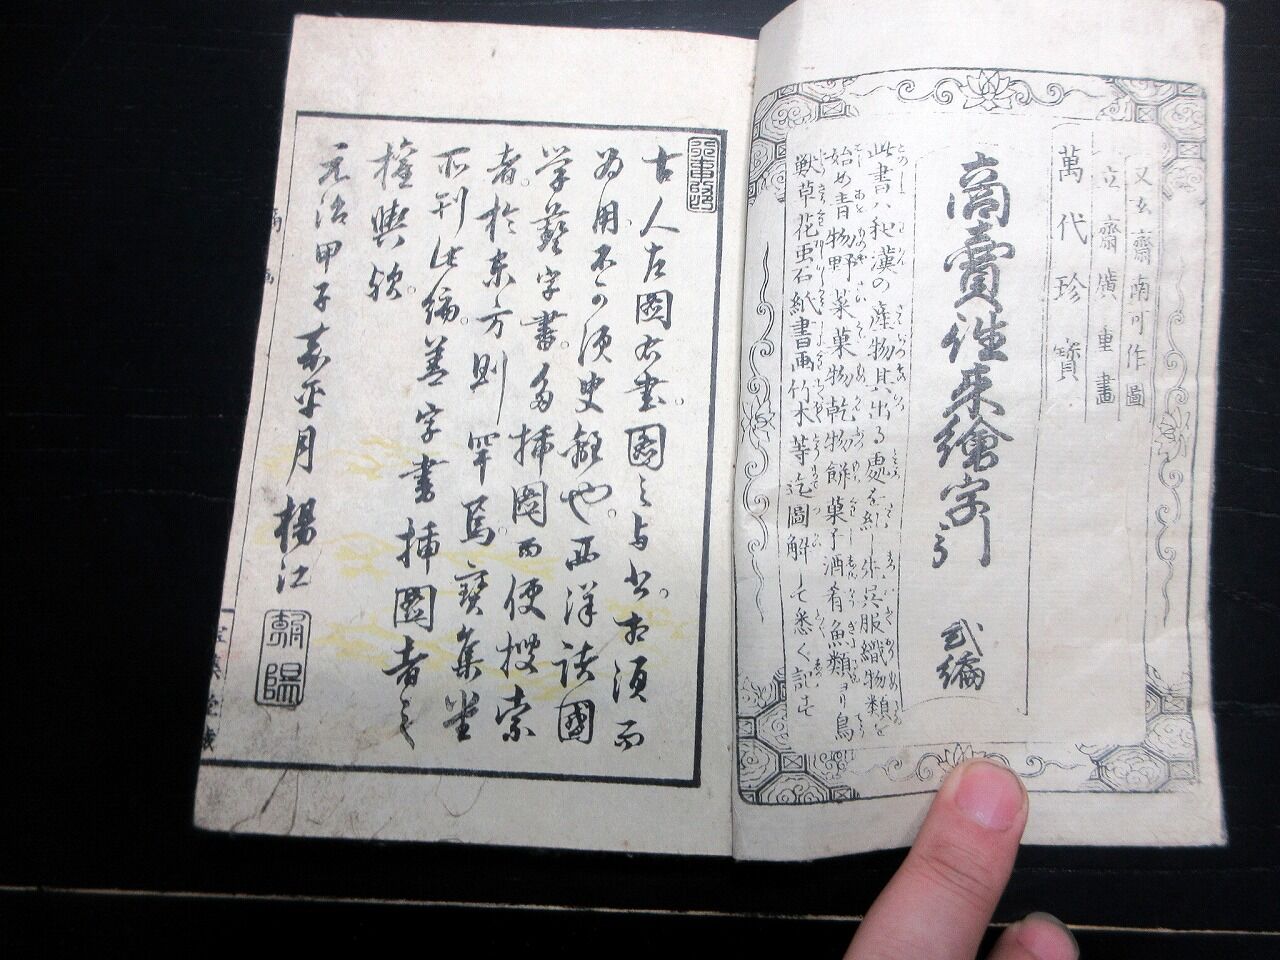 又玄齋南可作圖
立齋廣重畫
萬代珍寳
商賣徃来繪字引 弐編
此書ハ和漢の産物其出る處を糺し先呉服織物類を
始め青物野菜菓物乾物餅菓子酒肴魚類ヨリ鳥
獣草花虫石紙書画竹木等迄圖解して悉く記す
古人左圖右書。圖之与書。相須而
為用。不可須臾離也。西洋諸國
学藝字書。多插圖而便捜索
者。於東方則罕焉。寳集堂
所刊此編。善字書插圖者之
權輿歟。
元治甲子嘉平月 楊江